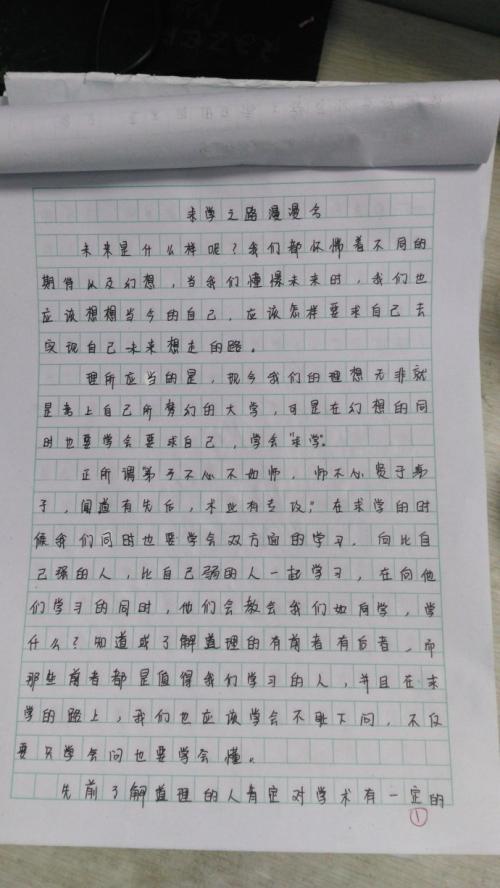 求学之路漫漫兮
未来是什么样呢？我们都怀惴着不同的
期待以及幻想，当我们憧憬未来时，我们也
应该想想当今的自己，应该怎样要求自己去
实现自己未来想走的路。
理所应当的是，现今我们的理想无非就
是考上自己所梦幻的大学，可是在幻想的同
时也要学会要求自己，学会“求学”。
正所谓弟子不必不如师，师不必贤于弟
子，闻道有先后，术业有专攻；在求学的时
候我们同时也要学会双方面的学习，向比自
己强的人，比自己弱的人一起学习，在向他
们学习的同时，他们会教会我们如何学，学
什么？知道或了解道理的有前者有后者，而
那些前者都是值得我们学习的人，并且在求
学的路上，我们也应该学会不耻下问，不仅
要只学会问也要学会懂。
先前了解道理的人肯定对学术有一定的
1